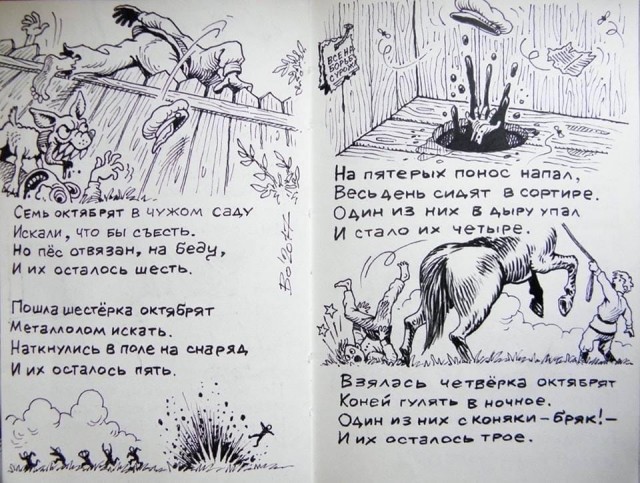 Семь октябрят в чужом саду
Искали, что бы съесть.
Но пёс отвязан, на беду,
И их осталось шесть.
Пошла шестёрка октябрят
Металлолом искать.
Наткнулись в поле на снаряд
И их осталось пять.
На пятерых понос напал,
Весь день сидят в сортире.
Один из них в дыру упал
И стало их четыре.
Взялась четвёрка октябрят
Коней гулять в ночное.
Один из них с коняки – бряк! –
И их осталось трое.